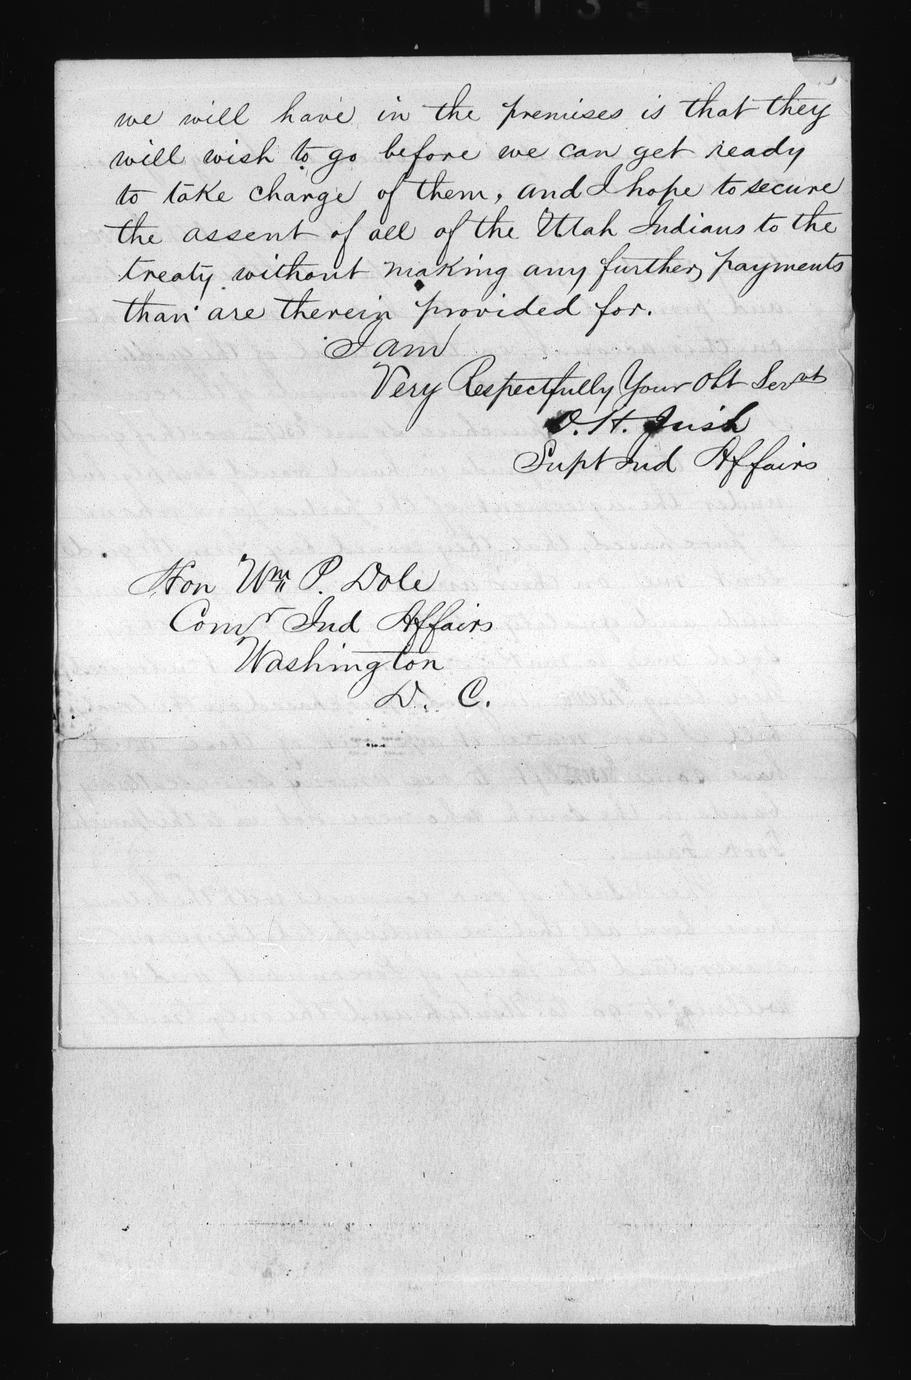 we will have in the premises is that they
will wish to go before we can get ready
to take charge of them, and I hope to secure
the assent of all of the Utah Indians to the
treaty without making any further payments
than are therein provided for.
I am
Very Respectfully Your Obt Servt
O. H. Irish
Supt Ind Affairs
Hon Wm P. Dole
Comr Ind Affairs
Washington
D. C.